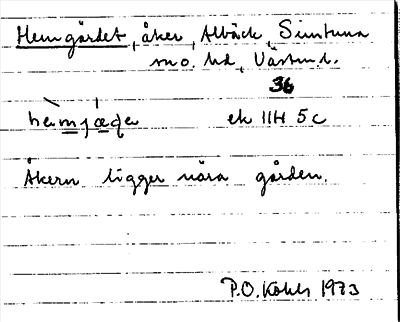 Hemgärdet, åker, Albäck, Simtuna
sno. hd, Västml.
36
ek 11H 5c
Åkern ligger nära gården.
P.O. Kohls 1973